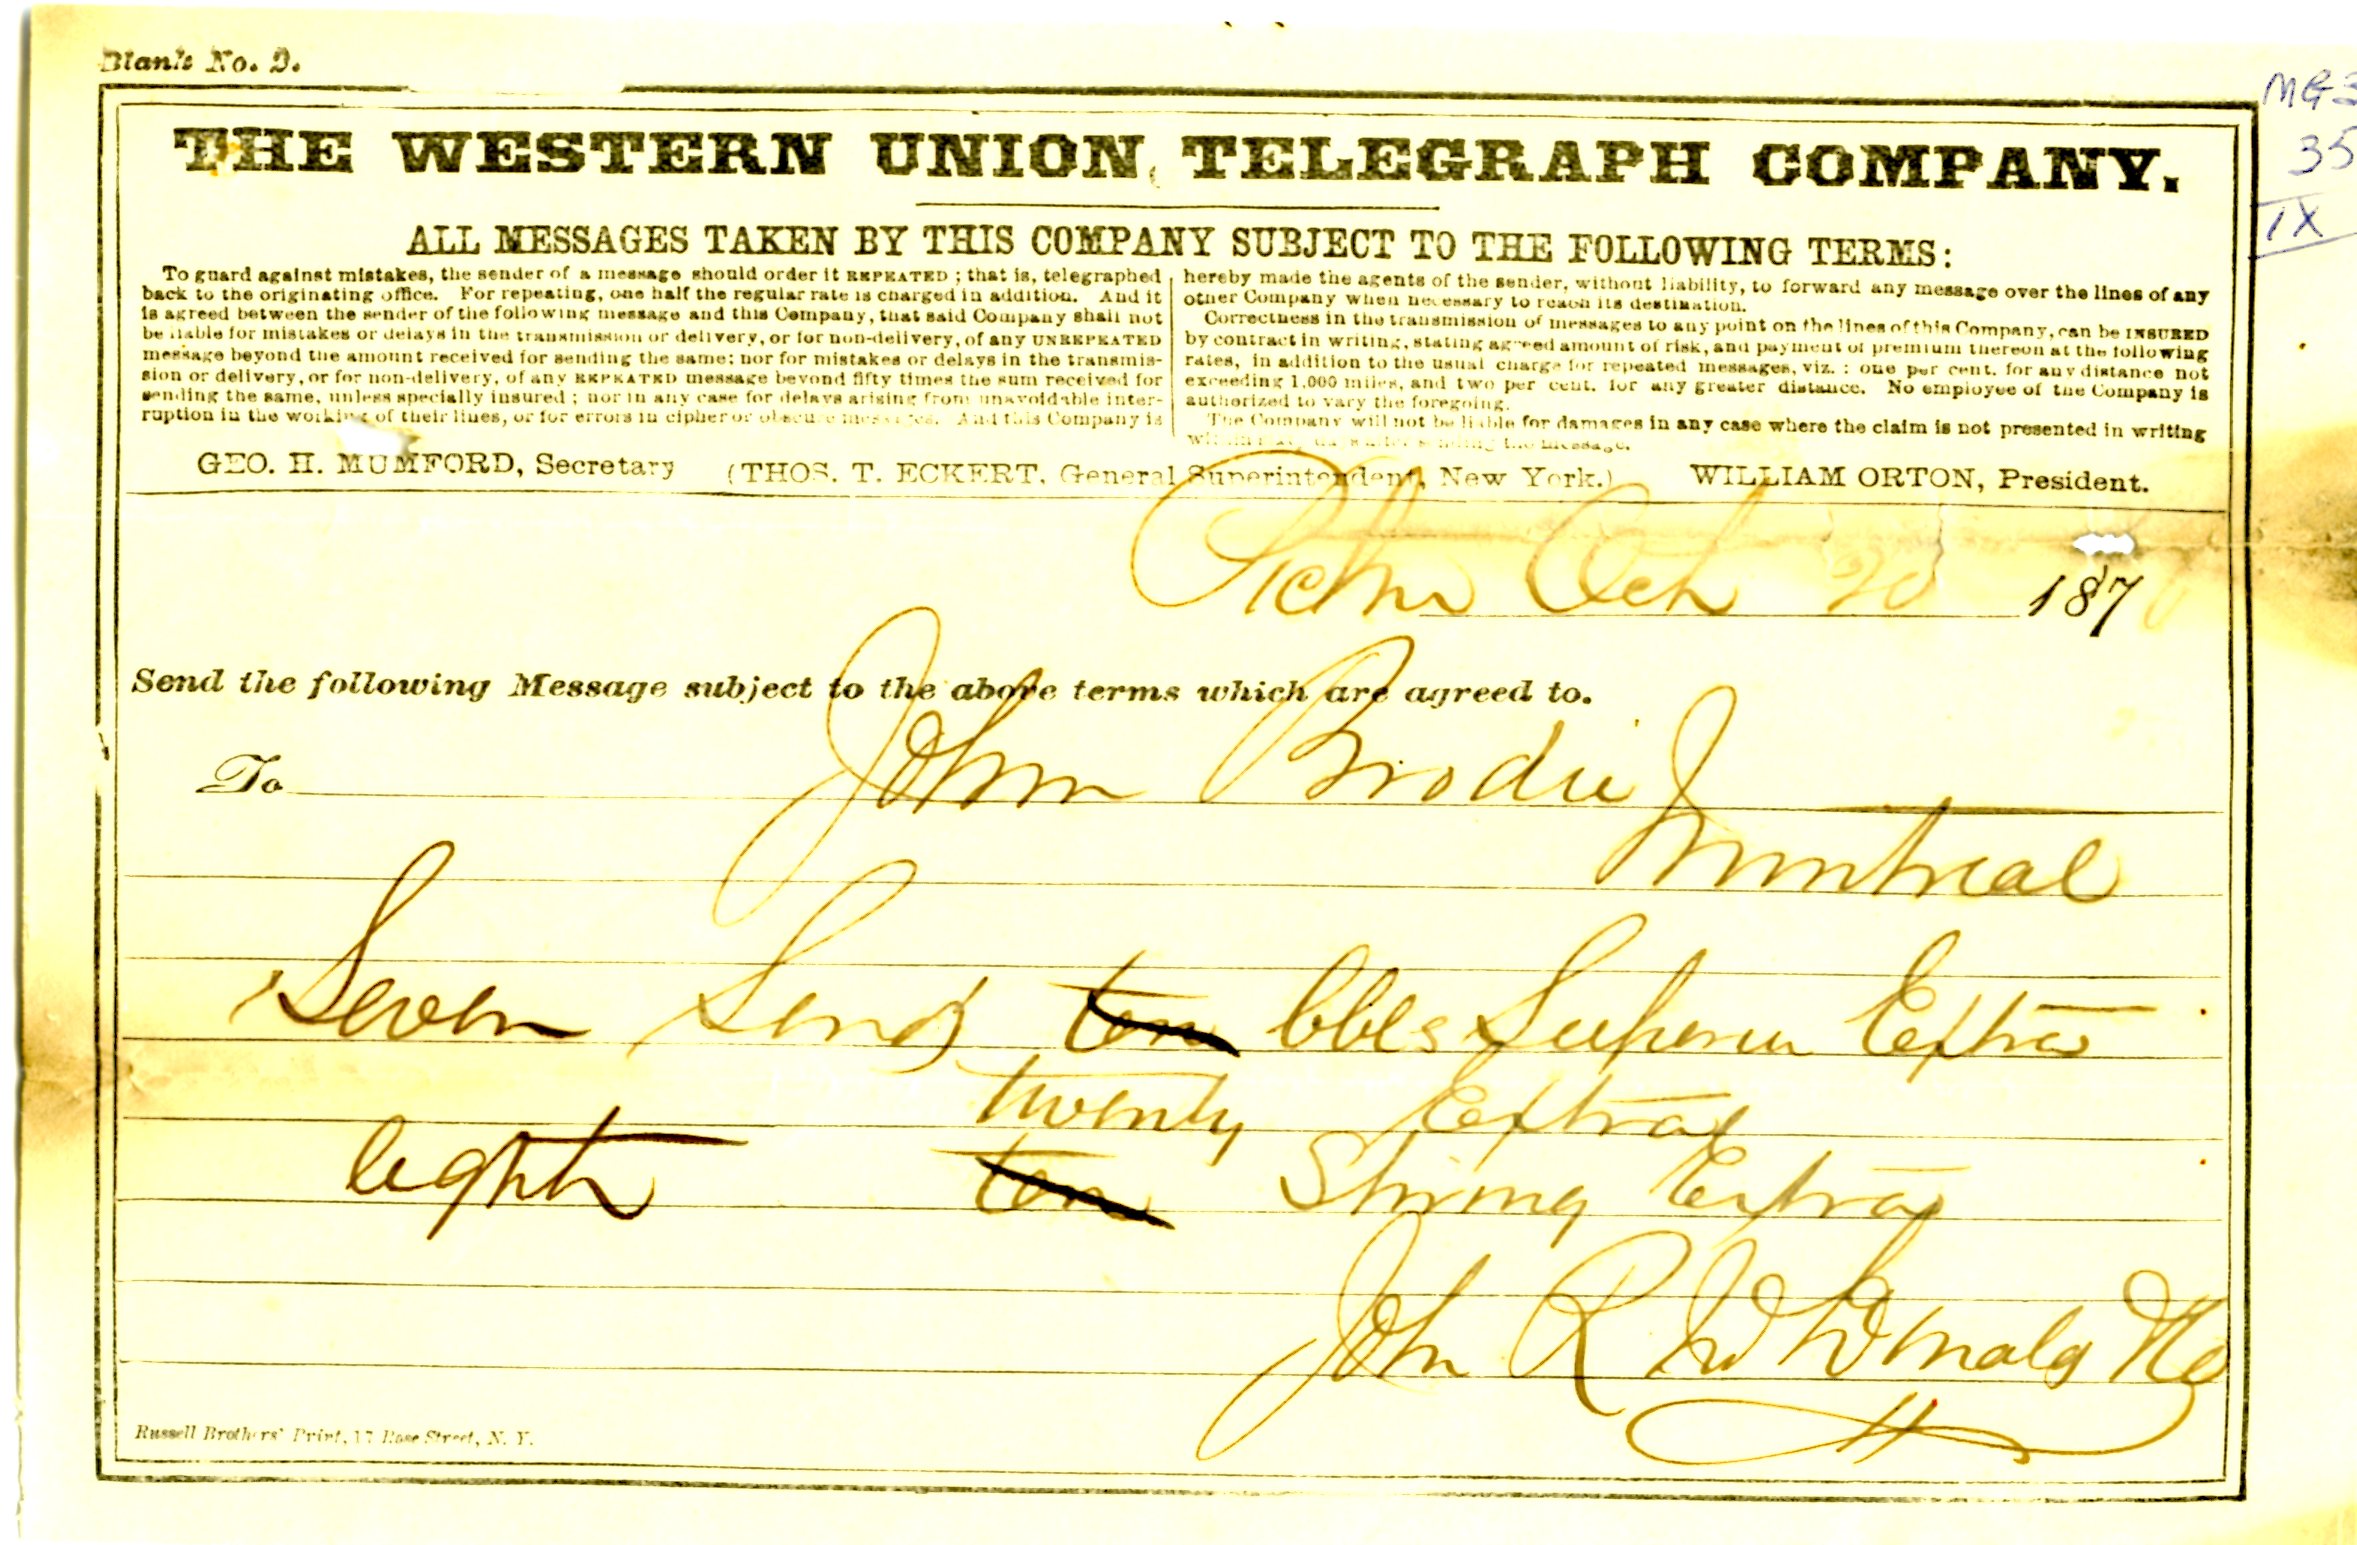 Blank No. 2.
MG3
35
IX
THE WESTERN UNION TELEGRAPH COMPANY.
ALL MESSAGES TAKEN BY THIS COMPANY SUBJECT TO THE FOLLOWING TERMS:
To guard against mistakes, the sender of a message should order it REPEATED; that is, telegraphed
back to the originating office. For repeating, one half the regular rate is charged in addition. And it
is agreed between the sender of the following message and this Company, that said Company shall not
be liable for mistakes or delays in the transmission or delivery, or for non-delivery, of any UNREPEATED
message beyond the amount received for sending the same; nor for mistakes or delays in the transmis-
sion or delivery, or for non-delivery, of any REPEATED message beyond fifty times the sum received for
sending the same, unless specially insured; nor in any case for delays arising from unavoidable inter-
ruption in the working of their lines, or for errors in cipher or obscure messages. And this Company is
hereby made the agents of the sender, without liability, to forward any message over the lines of any
other Company when necessary to reach its destination.
Correctness in the transmission of messages to any point on the lines of this Company, can be INSURED
by contract in writing, stating agreed amount of risk, and payment of premium thereon at the following
rates, in addition to the usual charge for repeated messages, viz.: one per cent. for any distance not
exceeding 1,000 miles, and two per cent. for any greater distance. No employee of the Company is
authorized to vary the foregoing.
The Company will not be liable for damages in any case where the claim is not presented in writing
sending the message.
GEO. H. MUMFORD, Secretary (THOS. T. ECKERT, General Superintendent, New York.) WILLIAM ORTON, President.
Pictou Oct 20 187
Send the following Message subject to the above terms which are agreed to.
To John Brodie
Montreal
Seven Send ten bbls Superior Extra
twenty Extra
eight ten Strong Extra
John R
Russell Brothers' Print, 17 Rose Street, N. Y.